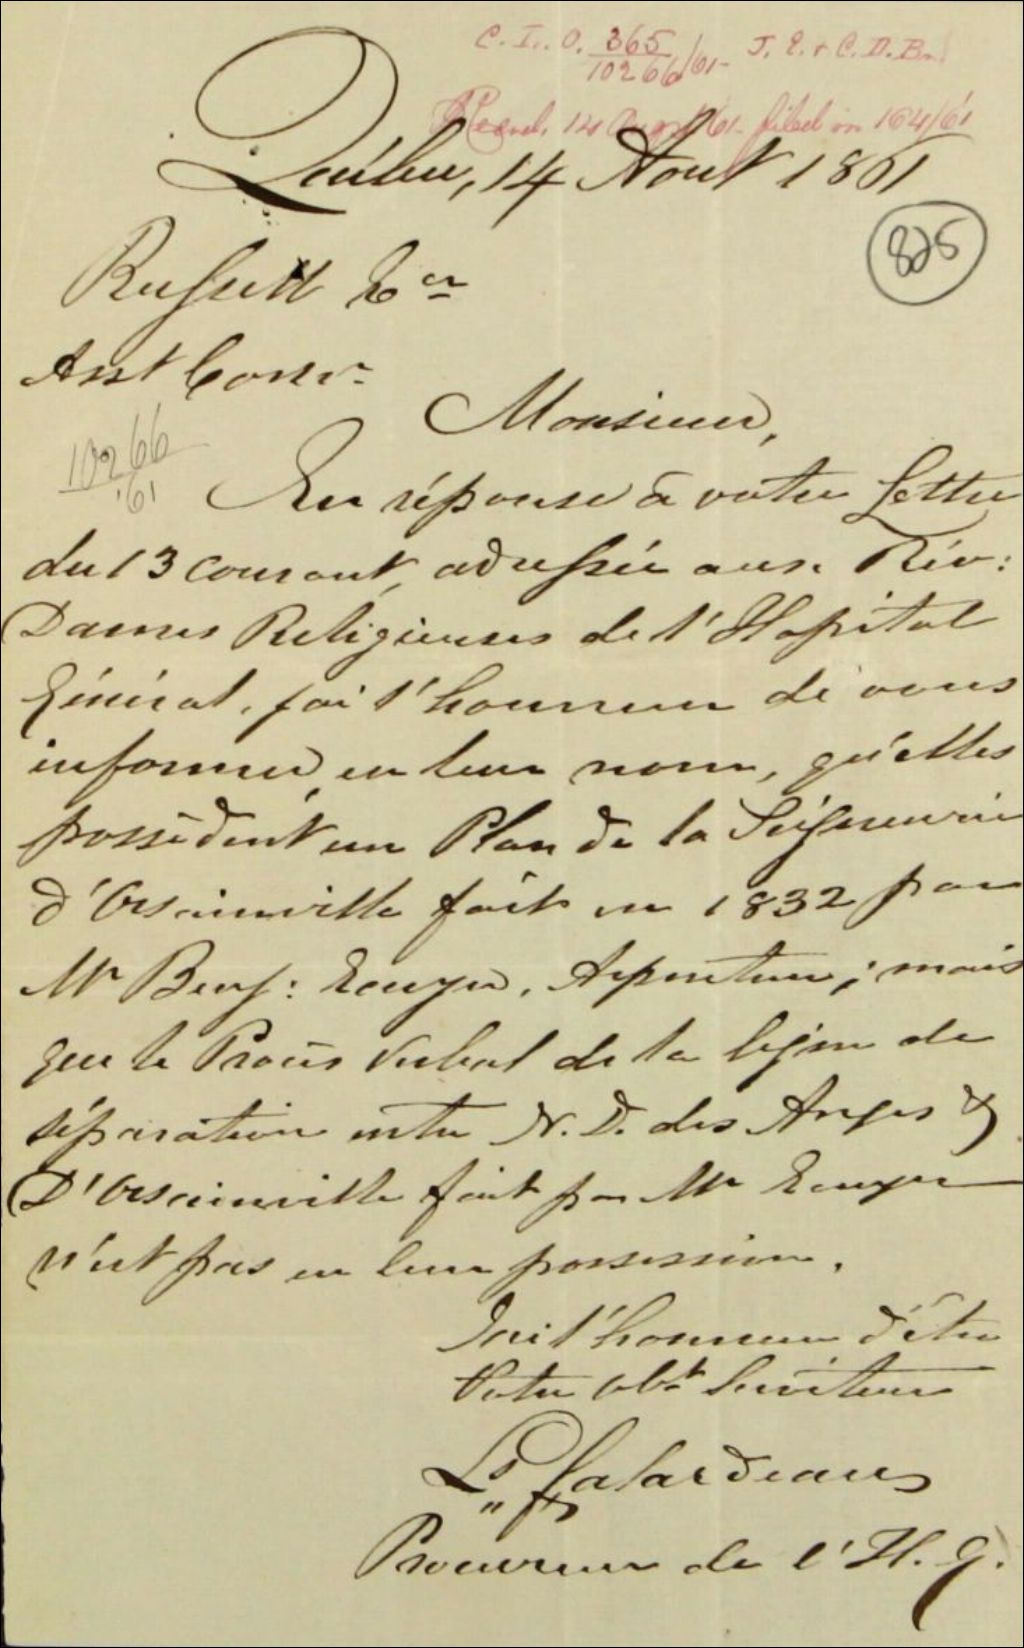 C. L. O. 365 J. E. & C. D. Br.
10266/61
Recvd. 14 Augt /61 filed in 164/61
Québec, 14 Aout 1861
825
Russell Ecr
Asst Comr.
Monsieur,
10266
'61
En réponse à votre Lettre
du 13 courant, adressée aux Rév:
Dames Religieuses de l'Hopital
Général, j'ai l'honneur de vous
informer, en leur nom, qu'elles
possèdent un Plan de la Seigneurie
d'Orsainville fait en 1832 par
Mr Benj: Ecuyer, Arpenteur; mais
que le Procès Verbal de la ligne de
séparation entre N. D. des Anges &
D'Orsainville fait par Mr Ecuyer
n'est pas en leur possession.
J'ai l'honneur d'être
Votre obt Serviteur
Ls Falardeau
Procureur de l'H. G.